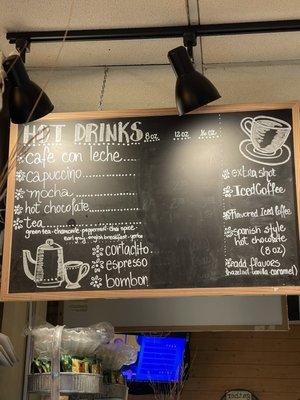 HOT DRINKS 8 oz. 12 oz. 16 oz.
café con leche
capuccino
mocha
hot chocolate
tea
green tea - chamomile - peppermint - chai spice -
earl grey - english breakfast - yerba
cortadito
espresso
bombon
extra shot
Iced Coffee
Flavored Iced Coffee
Spanish style
hot chocolate
(8 oz)
add flavors
(hazelnut-vanilla-caramel)